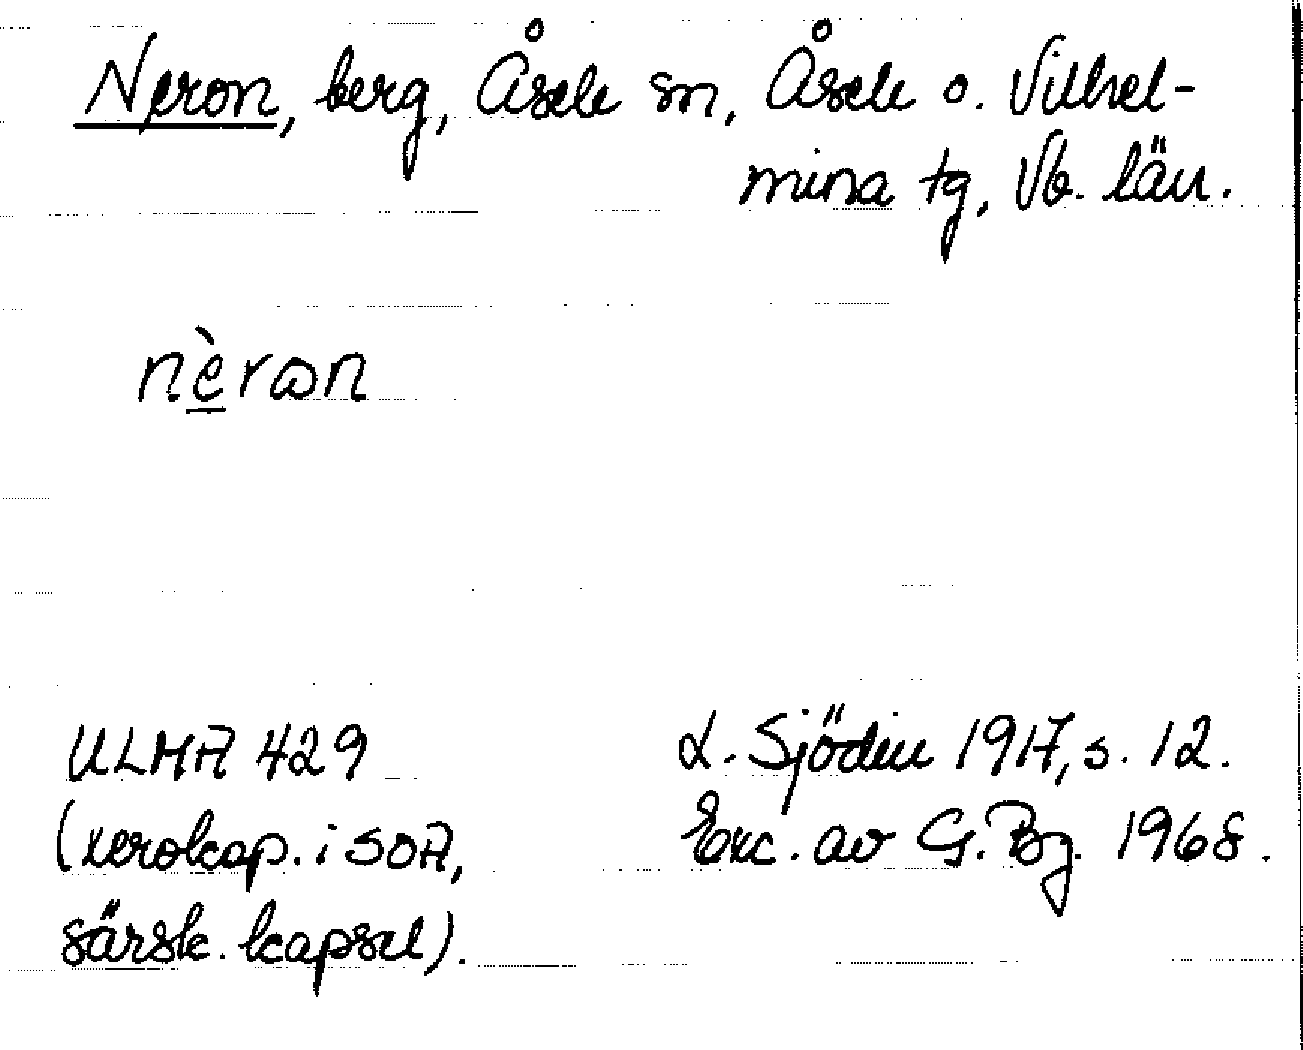 Neron, berg, Åsele sn, Åsele o. Vilhel-
mina tg, Vb. län.
nè̲rɷn
ULMA 429
(xerokop. i SOA,
särsk. kapsel).
L. Sjödin 1917, s. 12.
Exc. av G. Bj. 1968.